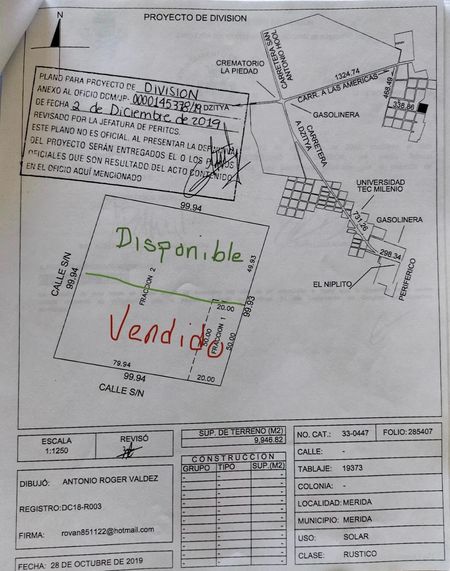 PROYECTO DE DIVISION
PLANO PARA PROYECTO DE DIVISION
ANEXO AL OFICIO DCM/JP- 0000145338/19 DZITYA
DE FECHA 2 de Diciembre de 2019
REVISADO POR LA JEFATURA DE PERITOS.
ESTE PLANO NO ES OFICIAL, AL PRESENTAR LA
DEL PROYECTO SERÁN ENTREGADOS EL O LOS
OFICIALES QUE SON RESULTADO DEL ACTO CONTENIDO
EN EL OFICIO AQUÍ MENCIONADO
CREMATORIO
LA PIEDAD
CARRETERA SAN
ANTONIO HOOL
1324.74
CARR. A LAS AMERICAS
468.49
338.86
GASOLINERA
CARRETERA
A DZITYA
UNIVERSIDAD
TEC MILENIO
731.26
GASOLINERA
298.34
EL NIPLITO
PERIFERICO
99.94
CALLE S/N
99.94
Disponible
FRACCION 2
49.93
99.93
20.00
Vendido
50.00
FRACCION 1
50.00
79.94
20.00
99.94
CALLE S/N
ESCALA
1:1250
REVISÓ
SUP. DE TERRENO (M2)
9,946.82
CONSTRUCCION
GRUPO TIPO SUP.(M2)
DIBUJÓ: ANTONIO ROGER VALDEZ
REGISTRO:DC18-R003
FIRMA: rovan851122@hotmail.com
FECHA: 28 DE OCTUBRE DE 2019
NO. CAT.: 33-0447 FOLIO:285407
CALLE: -
TABLAJE: 19373
COLONIA: -
LOCALIDAD: MERIDA
MUNICIPIO: MERIDA
USO: SOLAR
CLASE: RUSTICO